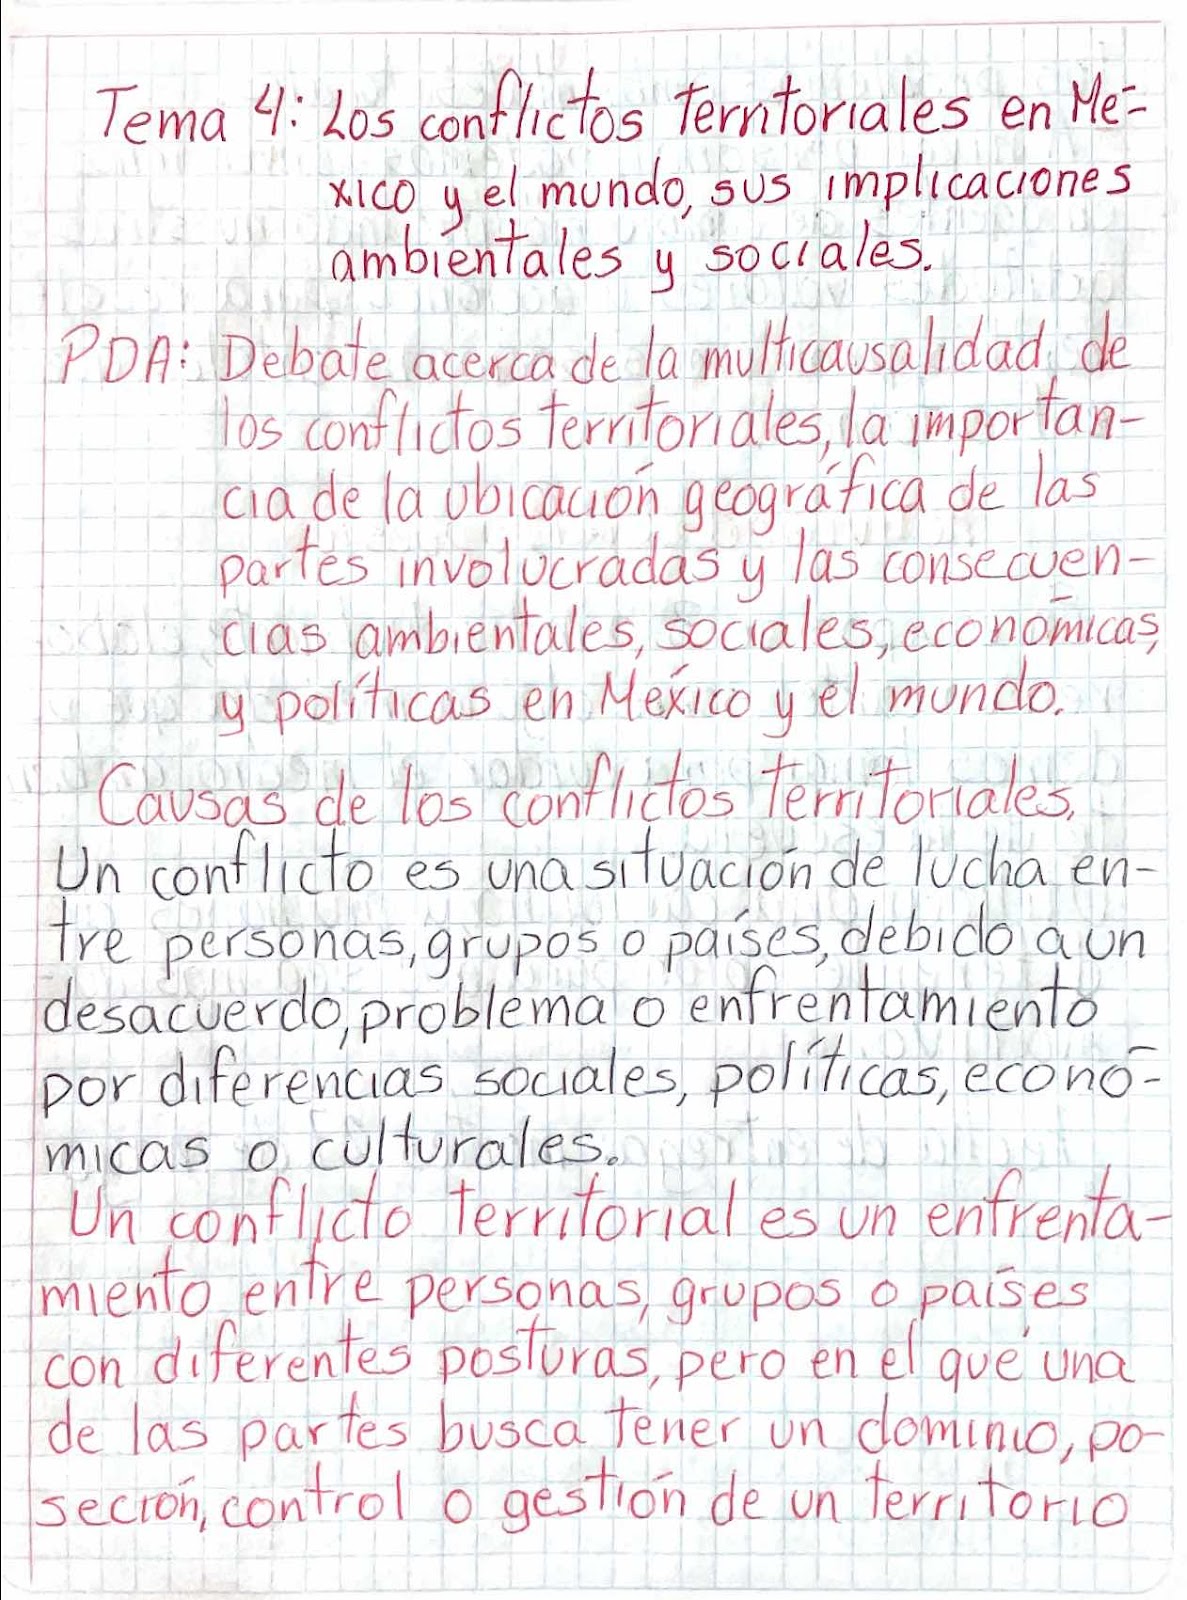 Tema 4: Los conflictos territoriales en Mé-
xico y el mundo, sus implicaciones
ambientales y sociales.
PDA: Debate acerca de la multicausalidad de
los conflictos territoriales, la importan-
cia de la ubicación geográfica de las
partes involucradas y las consecuen-
cias ambientales, sociales, económicas,
y políticas en México y el mundo.
Causas de los conflictos territoriales.
Un conflicto es una situación de lucha en-
tre personas, grupos o países, debido a un
desacuerdo, problema o enfrentamiento
por diferencias sociales, políticas, econó-
micas o culturales.
Un conflicto territorial es un enfrenta-
miento entre personas, grupos o países
con diferentes posturas, pero en el que una
de las partes busca tener un dominio, po-
seción, control o gestión de un territorio